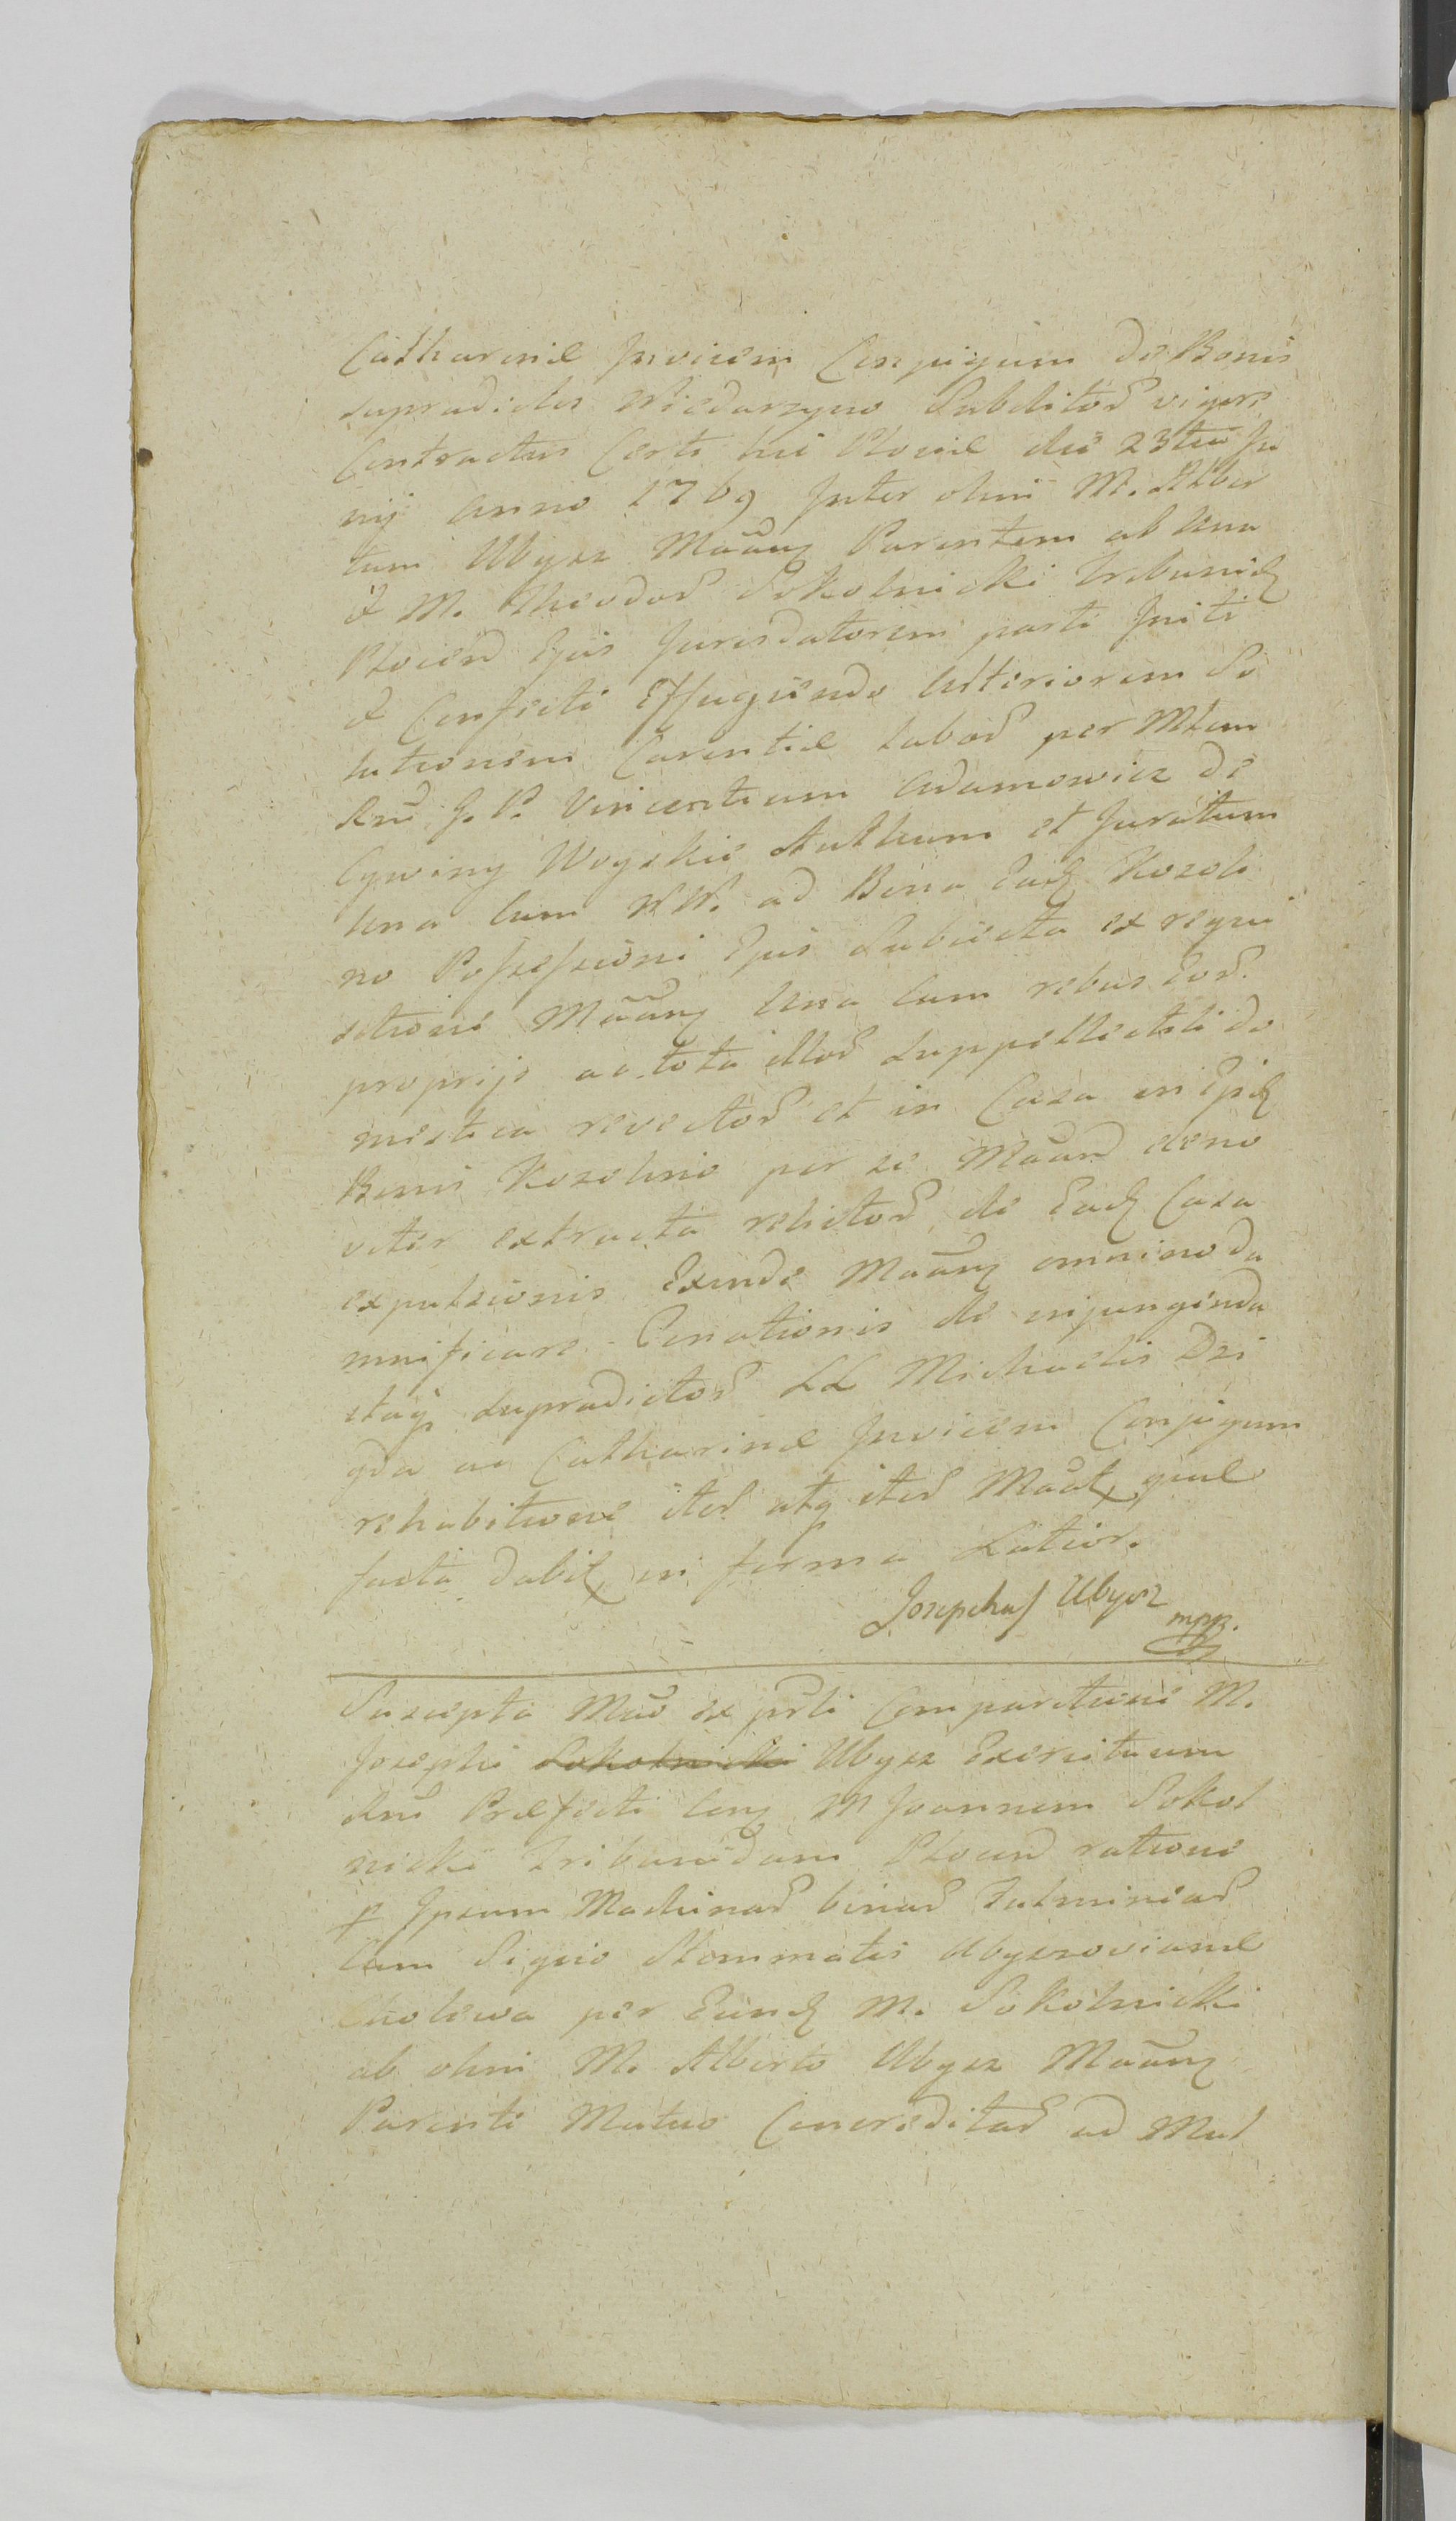 Catharinæ Invicem Conjugum de Bonis
supradictis Niedarzyno Subditoꝝ vigore
Contractus Certi hic Plociæ die 23tia Ju
nij Anno 1769 Inter olim M. Alber
tum Ubysz Maãnq Parentem ab Una
& M. Theodoꝝ Sokolnicki Tribunidꝫ
Plocieñ Ejus Jurisdatorem parti Initi
& Confecti Effugiendo Ulteriorem So
lutionem Carentiæ laboꝝ per Mtum
Rnd J. P. Vincentium Adamowicz de
Cywiny Woyskie Authum et Juratum
Una Cum NN. ad Bona Eadꝫ Kozoli
no Possessioni Ejus Subiecta ex requi
sitione Maãnq Una Cum rebus Eoꝝ
proprijs ac tota illoꝝ suppellectili do
mestica revectoꝝ et in Casa in Ejsdꝫ
Bonis Kozolino per se Maãnd deno
viter extructa relictoꝝ de Eadꝫ Casa
expulsionis Exinde Maãnq omnimo da
mnificare - Cenationis de injungenda
itaqꝫ supradictoꝝ LL Michaelis Dzi
gda ac Catharinæ Invicem Conjugum
rehabitione iteꝝ atqꝫ iteꝝ Maãtꝫ quæ
facta dabitꝫ in forma Latior.
Josephus Ubysz
mpp.
Suscepta Maõ ex pãrti Comparitione M.
Josephi Sokolnicki Ubysz Exercituum
Rni Præfecti Conq M Joannem Sokol
nicki Tribunidam Ploceñ ratione
p Ipsum Machinaꝝ binaꝝ Fulminiaꝝ
Cum Signo Stemmatis Ubyszoviano
Cholewa per Eundꝫ M. Sokolnicki
ab olim M. Alberto Ubysz Maãnq
Parenti Mutuo Concreditaꝝ ad Mul